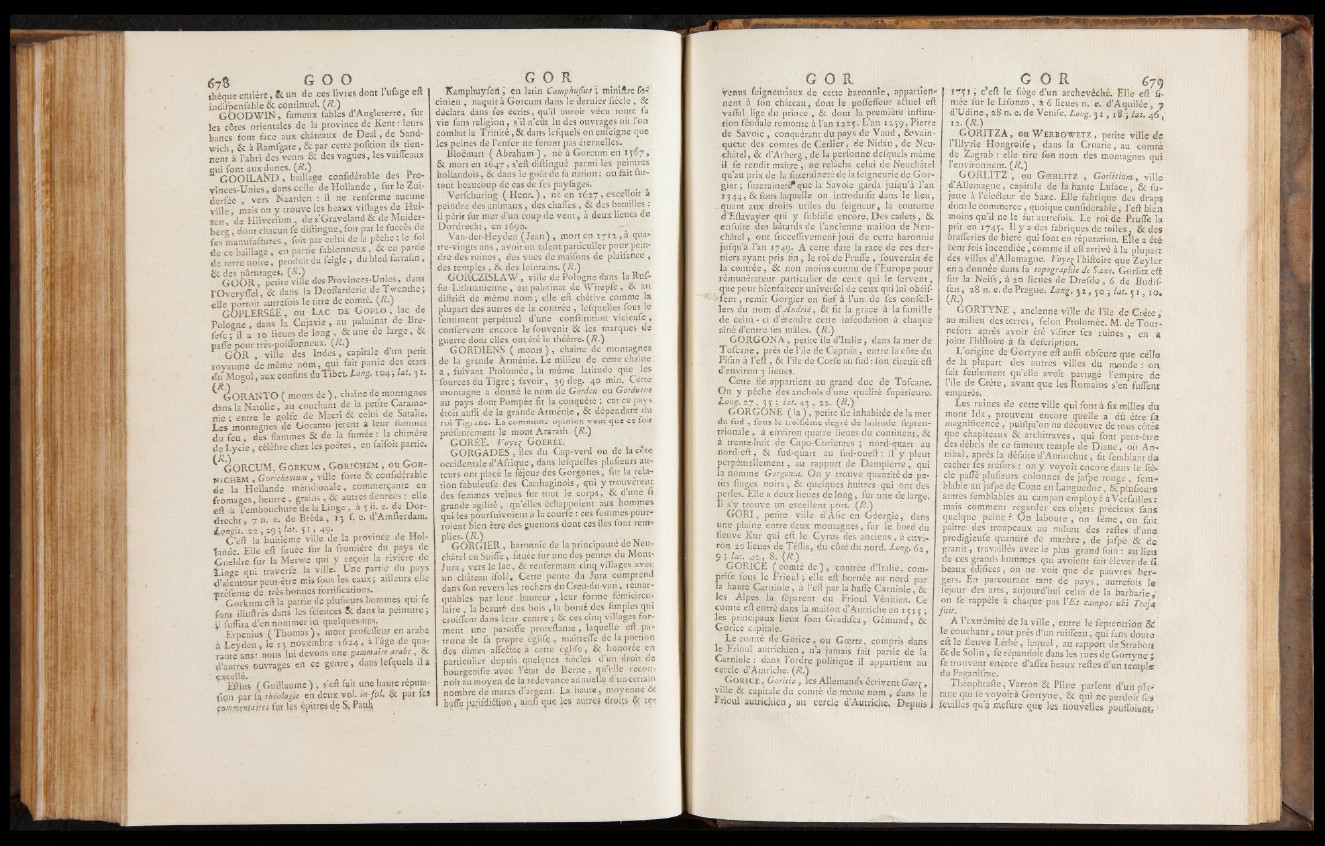 678 G O O
thèque entière, & un de ces livres dont l'usage est
indispensable & continuel. (R.)
GOODWIN, fameux sables d'Angleterre, sur
les côtes orientales de la province de Kent : leurs
bancs font face aux châteaux de Deal, de Sand-
wich, & à Ramsgate, & par cette position ils tien-
nent à l'abri des vents & des vagues, les vaisseaux
qui sont aux dunes. (R.)
GOOILAND, bailliage considérable des Pro-
vinces-Unies, dans celle de Hollande, sur le Zui-
dersée, vers Naarden : il ne renferme aucune
ville, mais on y trouve les beaux villages de Hui-
zen, de Hilversum, de s'Graveland & de Muider-
berg, dont chacun se distingue, soit par le succès de
ses manufactures, soit par celui de la pêche : le sol
de ce bailliage, en partie sablonneux, & en partie
de terre noire, produit du seigle, du bled sarrasin,
& des pâturages. (R.)
GOOR, petite ville des Provinces-Unies, dans
l'Overyssel, & dans la Drossarderie de Twenthe ;
elle portoit autrefois le titre de comté. (R.)
GOPLERSÉE, ou LAC DE GOPLO, lac de
Pologne, dans la Cujavie, au palatinat de Bre-
sesc ; il a 10 lieues de long, & une de large, &
passe pour très-poissonneux. (R.)
GOR, ville des Indes, capitale d'un petit
royaume de même nom, qui fait partie des états
du Mogol, aux confins du Tibet. Long. 104 ; lat. 31.
(R.)
GORANTO (monts de), chaîne de montagnes
dans la Natolie, au couchant de la petite Carama-
nie ; entre le golfe de Macri & celui de Satalie.
Les montagnes de Goranto jètent à leur sommet
du feu, des flammes & de la fumée : la chimère
de Lycie, célèbre chez les poëtes, en faisoit partie.
(R.)
GORCUM, GORKUM, GORICHEM, ou GOR-
NICHEM, Gorichemum, ville forte & considérable
de la Hollande méridionale, commerçante en
fromages, beurre, grains, & autres denrées : elle
est à l'embouchure de la Linge, à 5 li. e. de Dor-
drecht, 7 n. e. de Bréda, 13 s. e. d'Amsterdam.
Longit. 22, 29 ; lat. 51, 49.
C'est la huitième ville de la province de Hol-
lande. Elle est située sur la frontière du pays de
Gueldre sur la Merwe qui y reçoit la rivière de
Linge qui traverse la ville. Une partie du pays
d'alentour peut-être mis sous les eaux ; ailleurs elle
présente de très bonnes fortifications.
Gorkum est la patrie de plusieurs hommes qui se
sont illustrés dans les sciences & dans la peinture ;
il suffira d'en nommer ici quelques-uns.
Erpenius (Thomas), mort professeur en arabe
à Leyden, le 13 novembre 1624, à l'âge de qua-
rante ans : nous lui devons une grammaire arabe, &
d'autres ouvrages en ce genre, dans lesquels il a
excellé.
Estius (Guillaume), s'est fait une haute réputa-
tion par sa théologie en deux vol. in-fol. & par ses
commentaires sur les épîtres de S. Paul.
G O R
Kamphuysen, en latin Camphusius ; ministre so-
cinien, naquit à Gorcum dans le dernier siècle, &
déclara dans ses écrits, qu'il auroit vécu toute sa
vie sans religion, s'il n'eût lu des ouvrages où l'on
combat la Trinité, & dans lesquels on enseigne que
les peines de l'enfer ne seront pas éternelles.
Bloëmart (Abraham), né à Gorcum en 1567,
& mort en 1647, s'est distingué parmi les peintres
hollandois, & dans le goût de sa nation : on fait sur-
tout beaucoup de cas de ses paysages.
Verschuring (Henr.), né en 1627, excelloit à
peindre des animaux, des chasses, & des batailles :
il périt sur mer d'un coup de vent, à deux lieues de
Dordrecht, en 1690.
Van-der-Heyden (Jean), mort en 1712, à qua-
tre-vingts ans, avoit un talent particulier pour pein-
dre des ruines, des vues de maisons de plaisance,
des temples, & des lointains. (R.)
GORCZISLAW, ville de Pologne dans la Rus-
sie Lithuanienne, au palatinat de Witepsc, & au
district de même nom ; elle est chétive comme la
plupart des autres de la contrée, lesquelles sous le
leniment perpétuel d'une constitution vicieuse,
conservent encore le souvenir & les marques de
guerre dont elles ont été le théâtre. (R.)
GORDIENS (monts), chaîne de montagnes
de la grande Arménie. Le milieu de cette chaîne
a, suivant Ptolomée, la même latitude que les
sources du Tigre ; savoir, 39 deg. 40 min. Cette
montagne a donné le nom de Gorden ou Gorduene
au pays dont Pompée fit la conquête : car ce pays
étoit aussi de la grande Arménie, & dépendant du
roi Tigrane. La commune opinion veut que ce soit
présentement le mont Ararath. (R.)
GORÉE. Voyez GOERÉE.
GORGADES, îles du Cap-verd ou de la côte
occidentale d'Afrique, dans lesquelles plusieurs au-
teurs ont placé le séjour des Gorgones, sur la rela-
tion fabuleuse des Carthaginois, qui y trouvèrent
des femmes velues sur tout le corps, & d'une si
grande agilité, qu'elles échappoient aux hommes
qui les poursuivoient à la course : ces femmes pour-
roient bien être des guenons dont ces îles sont rem-
plies. (R.)
GORGIER, baronnie de la principauté de Neu-
châtel en Suisse, située sur une des pentes du Mont-
Jura, vers le lac, & renfermant cinq villages avec
un château isolé. Cette pente du Jura comprend
dans son revers les rochers du Creu-du-van, remar-
quables par leur hauteur, leur forme sémicircu-
laire, la beauté des bois, la bonté des simples qui
croissent dans leur centre ; & ces cinq villages for-
ment une paroisse protestante, laquelle est pa-
trone de sa propre église, maîtresse de la portion
des dîmes affectée à cette église, & honorée en
particulier depuis quelques siècles d'un droit de
bourgeoisie avec l'état de Berne, qu'elle recon-
noît au moyen de la redevance annuelle d'un certain
nombre de marcs d'argent. La haute, moyenne &
basse jurisdiction, ainsi que les autres droits & re-
G O R
venus seigneuriaux de cette baronnie, appartien-
nent à son château, dont le possesseur actuel est
vassal lige du prince, & dont la première institu-
tion féodale remonte à l'an 1225. L'an 1259, Pierre
de Savoie, conquérant du pays de Vaud, & vain-
queur des comtes de Cerlier, de Nidau, de Neu-
châtel, & d'Arberg, de la personne desquels même
il se rendit maître, ne relâcha celui de Neuchâtel
qu'au prix de la suzeraineté de la seigneurie de Gor-
gier ; suzeraineté que la Savoie garda jusqu'à l'an
1344, & sous laquelle on introduisit dans le lieu,
quant aux droits utiles du seigneur, la coutume
d'Estavayer qui y subsiste encore. Des cadets, &
ensuite des bâtards de l'ancienne maison de Neu-
châtel, ont successivement joui de cette baronnie
jusqu'à l'an 1749. A cette date la race de ces der-
niers ayant pris fin, le roi de Prusse, souverain de
la contrée, & non moins connu de l'Europe pour
rémunérateur particulier de ceux qui le servent,
que pour bienfaiteur universel de ceux qui lui obéis-
sent, remit Gorgier en fief à l'un de ses conseil-
lers du nom d'Andrié, & fit la grace à la famille
de celui-ci d'étendre cette inféodation à chaque
aîné d'entre ses mâles. (R.)
GORGONA, petite île d'Italie, dans la mer de
Toscane, près de l'île de Capraia, entre la côte du
Pisan à l'est, & l'île de Corse au sud : son circuit est
d'environ 3 lieues.
Cette île appartient au grand duc de Toscane.
On y pêche des anchois d'une qualité supérieure.
Long. 27, 35 ; lat. 43, 22. (R.)
GORGONE (la), petite île inhabitée de la mer
du sud, sous le troisième degré de latitude septen-
trionale, à environ quatre lieues du continent, &
à trente-huit de Capo-Corientes ; nord-quart au
nord-est, & sud-quart au sud-ouest : il y pleut
perpétuellement, au rapport de Dampierre, qui
la nomme Gorgonia. On y trouve quantité de pe-
tits singes noirs, & quelques huîtres qui ont des
perles. Elle a deux lieues de long, sur une de large.
Il s'y trouve un excellent port. (R.)
GORI, petite ville d'Asie en Géorgie, dans
une plaine entre deux montagnes, sur le bord du
fleuve Kur qui est le Cyrus des anciens, à envi-
ron 20 lieues de Téflis, du côté du nord. Long. 62,
9 ; lat. 42, 8. (R.)
GORICE (comté de), contrée d'Italie, com-
prise sous le Frioul ; elle est bornée au nord par
la haute Carniole, à l'est par la basse Carniole, &
les Alpes la séparent du Frioul Vénitien. Ce
comté est entré dans la maison d'Autriche en 1515 ;
les principaux lieux sont Gradisca, Gémund, &
Gorice capitale.
Le comté de Gorice, ou Gœrtz, compris dans
le Frioul autrichien, n'a jamais fait partie de la
Carniole : dans l'ordre politique il appartient au
cercle d'Autriche. (R.)
GORICE, Goritia, les Allemands écrivent Gœrz,
ville & capitale du comté de même nom, dans le
Frioul autrichien, au cercle d'Autriche. Depuis
G O R 679
1751, c'est le siège d'un archevêché. Elle est si-
tuée sur le Lisonzo, à 6 lieues n. e. d'Aquilée, 7
d'Udine, 28 n. e. de Venise. Long. 31, 18 ; lat. 46,
12. (R.)
GORITZA, ou WERBOWETZ, petite ville de
l'Illyrie Hongroise, dans la Croatie, au comté
de Zagrab : elle tire son nom des montagnes qui
l'environnent. (R.)
GORLITZ, ou GŒRLITZ, Gorlitium, ville
d'Allemagne, capitale de la haute Lusace, & su-
jette à l'électeur de Saxe. Elle fabrique des draps
dont le commerce, quoique considérable, l'est bien
moins qu'il ne le fut autrefois. Le roi de Prusse la
prit en 1745. Il y a des fabriques de toiles, & des
brasseries de bière qui sont en réputation. Elle a été
cent fois incendiée, comme il est arrivé à la plupart
des villes d'Allemagne. Voyez l'histoire que Zeyler
en a donnée dans sa topographie de Saxe. Gorlitz est
sur la Neiss, à 20 lieues de Dresde, 6 de Budis-
sen, 28 n. e. de Prague. Long. 32, 50 ; lat. 51, 10.
(R.)
GORTYNE, ancienne ville de l'île de Crète,
au milieu des terres, selon Ptolomée. M. de Tour-
nefort après avoir été visiter ses ruines, en a
joint l'histoire à sa description.
L'origine de Gortyne est aussi obscure que celle
de la plupart des autres villes du monde : on
sait seulement qu'elle avoit partagé l'empire de
l'île de Crète, avant que les Romains s'en fussent
emparés.
Les ruines de cette ville qui sont à six milles du
mont Ida, prouvent encore quelle a dû être sa
magnificence, puisqu'on ne découvre de tous côtés
que chapiteaux & architraves, qui sont peut-être
des débris de ce fameux temple de Diane, où An-
nibal, après la défaite d'Antiochus, fit semblant de
cacher ses trésors : on y voyoit encore dans le siè-
cle passé plusieurs colonnes de jaspe rouge, sem-
blable au jaspe de Cone en Languedoc, & plusieurs
autres semblables au campan employé à Versailles :
mais comment regarder ces objets précieux sans
quelque peine ? On laboure, on sème, on fait
paître des troupeaux au milieu des restes d'une
prodigieuse quantité de marbre, de jaspe & de
granit, travaillés avec le plus grand soin : au lieu
de ces grands hommes qui avoient fait élever de si
beaux édifices, on ne voit que de pauvres ber-
gers. En parcourant tant de pays, autrefois le
séjour des arts, aujourd'hui celui de la barbarie,
on se rappèle à chaque pas l'Et campos ubi Troja
fuit.
A l'extrémité de la ville, entre le septentrion &
le couchant, tout près d'un ruisseau, qui sans doute
est le fleuve Léthé, lequel, au rapport de Strabon
& de Solin, se répandoit dans les rues de Gortyne ;
se trouvent encore d'assez beaux restes d'un temple
du Paganisme.
Théophraste, Varron & Pline parlent d'un pla-
tane qui se voyoit à Gortyne, & qui ne perdoit ses
feuilles qu'à mesure que les nouvelles poussoient.